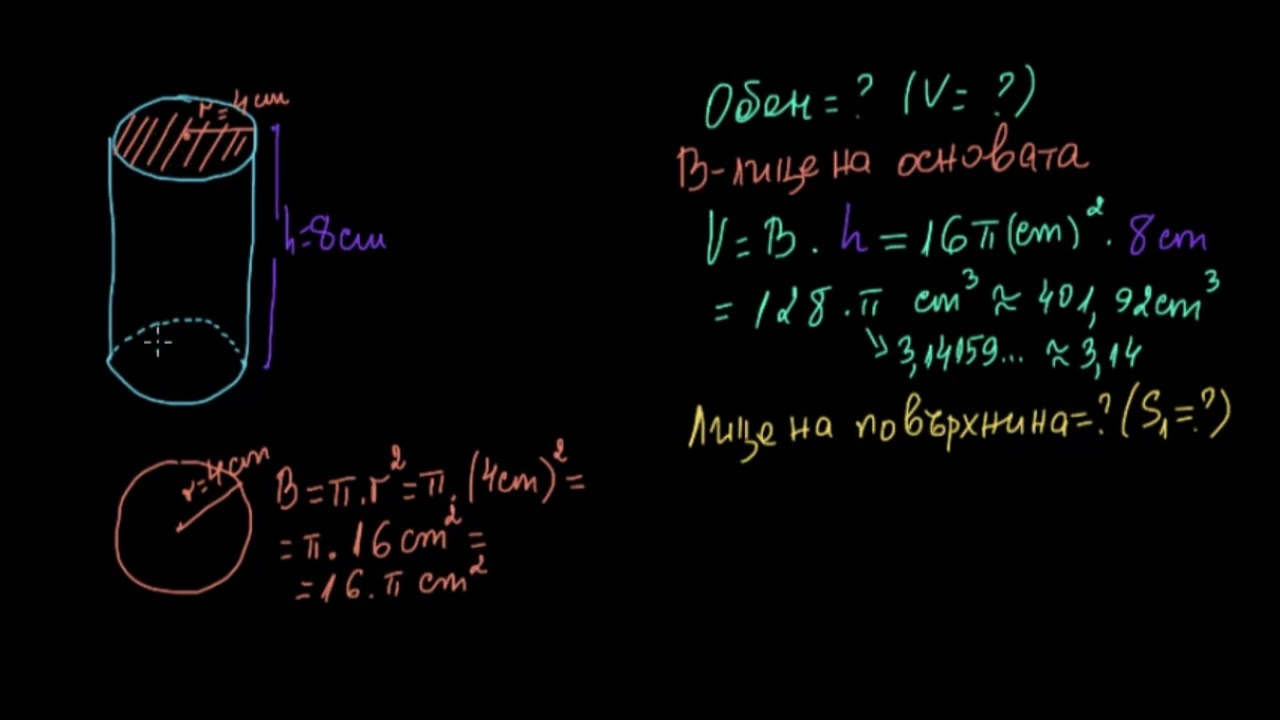 r=4cm
h=8cm
r=4cm
B=π.r²=π.(4cm)²=
=π.16cm²=
=16.π cm²
Обем=? (V=?)
B-лице на основата
V=B.h=16π(cm)².8cm
=128.π cm³≈401,92cm³
↘3,14159... ≈3,14
Лице на повърхнина=?(S₁=?)